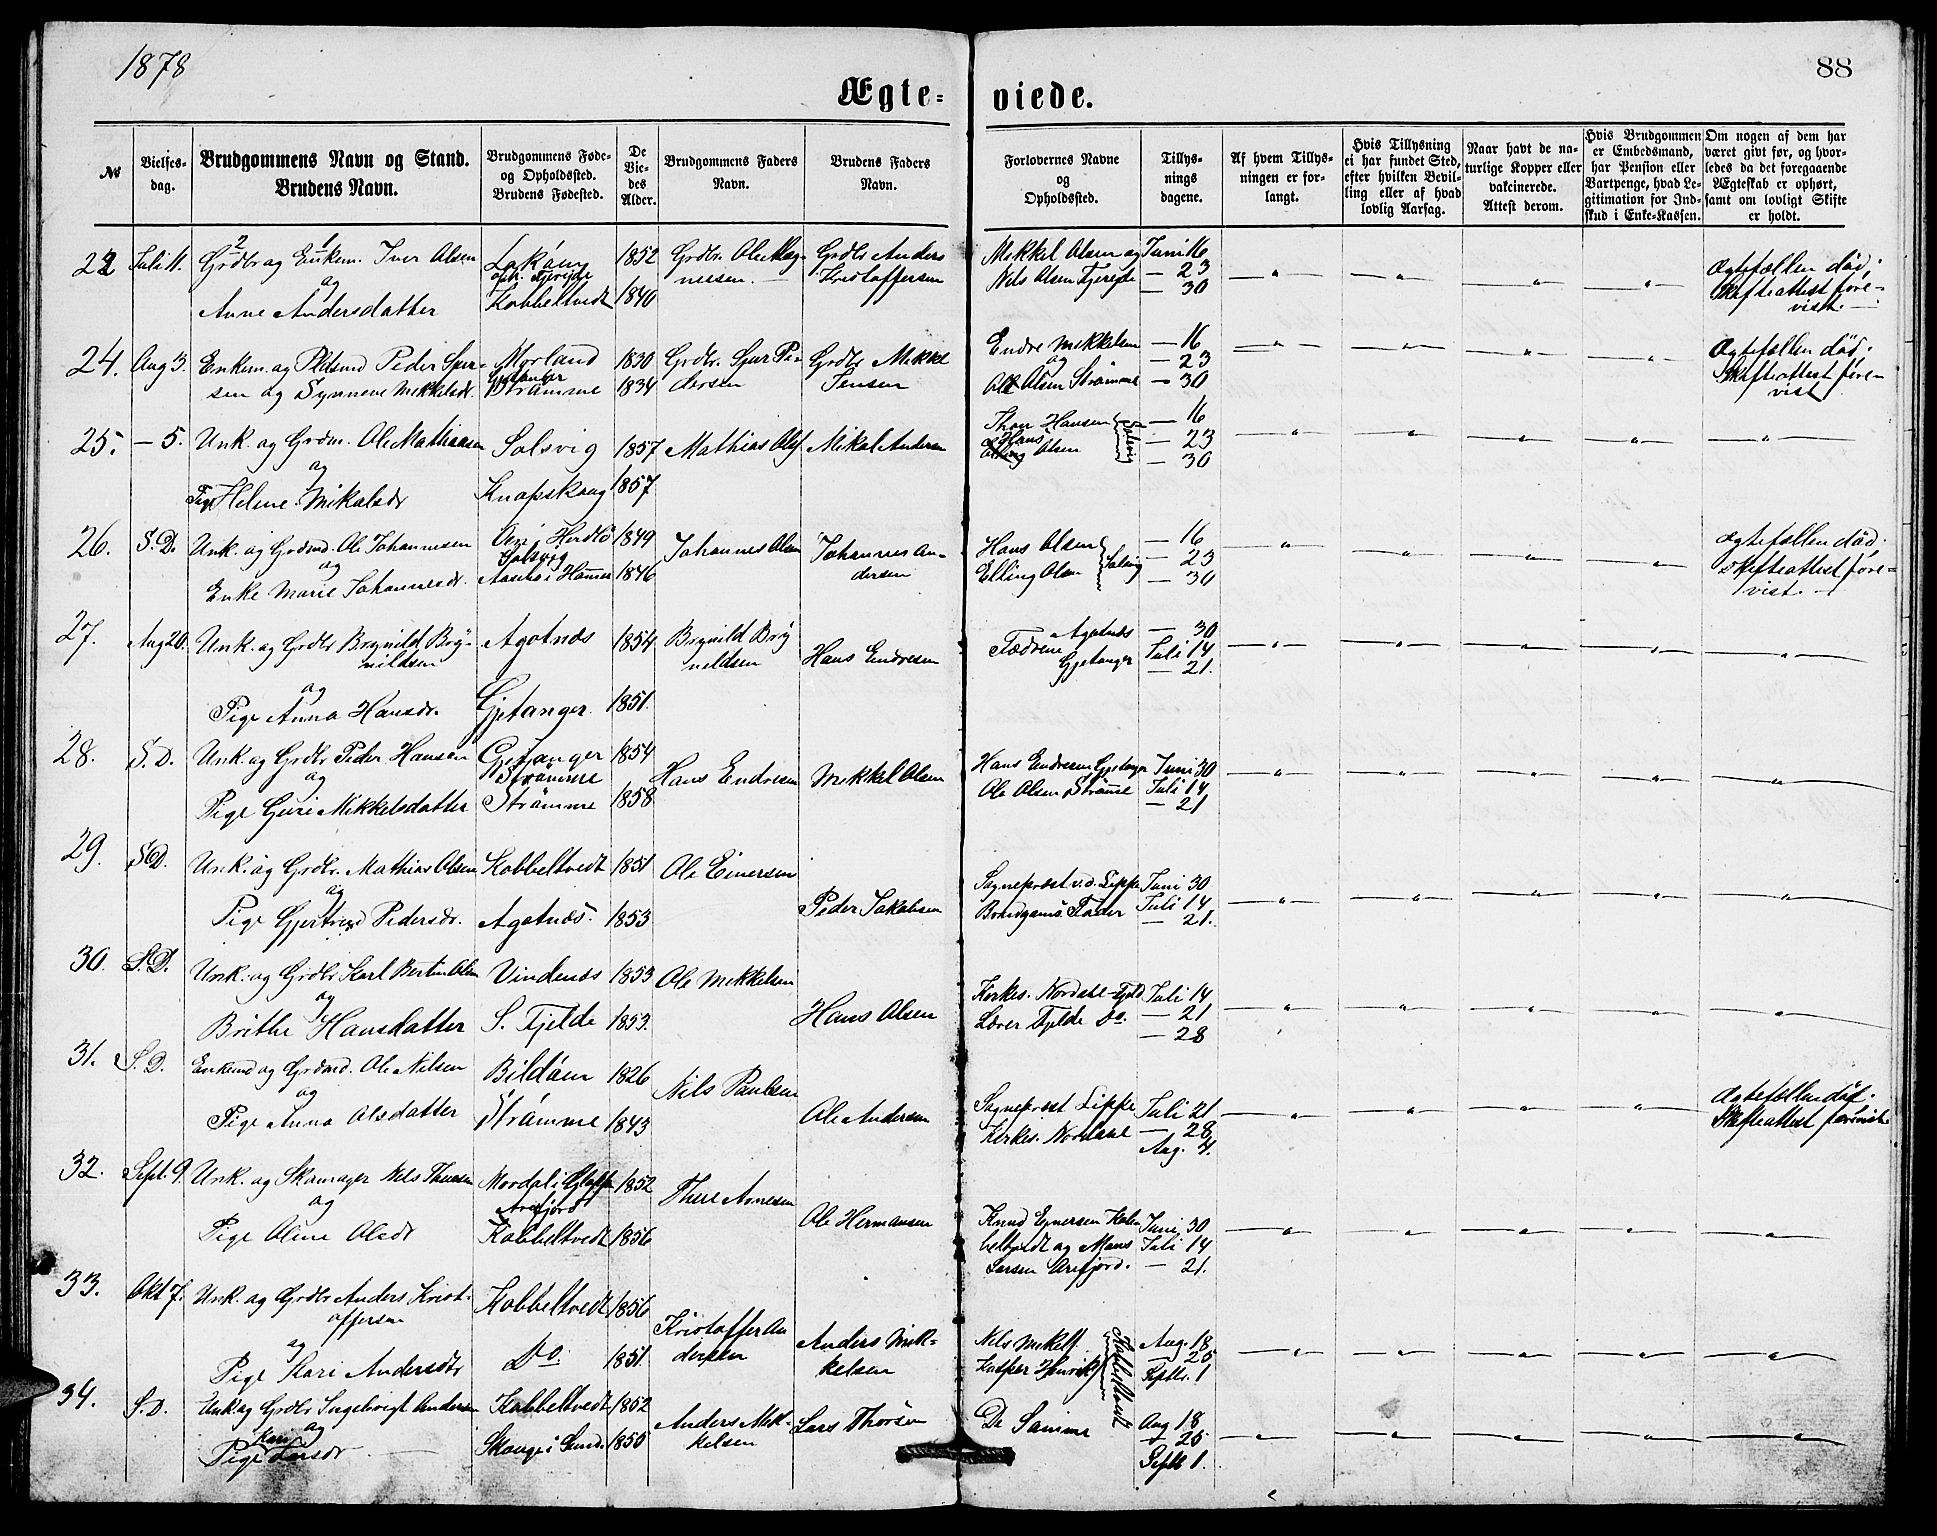 1878
88
Ægte-
viede.
№
Vielses-
dag.
Brudgommens Navn og Stand.
Brudens Navn.
Brudgommens Føde-
og Opholdssted.
Brudens Fødested.
De
Vie-
des
Alder.
Brudgommens Faders
Navn.
Brudens Faders
Navn.
Forlovernes Navne
og
Opholdssted.
Tillys-
nings
dagene.
Af hvem Tillys-
ningen er for-
langt.
Hvis Tillysning
ei har fundet Sted,
efter hvilken Bevil-
ling eller af hvad
lovlig Aarsag.
Naar havt de na-
turlige Kopper eller
vakcinerede.
Attest derom.
Hvis Brudgommen
er Embedsmand,
har Pension eller
Vartpenge, hvad Le-
gitimation for Ind-
skud i Enke-Kassen.
Om nogen af dem har
været givt før, og hvor-
ledes da det foregaaende
Ægteskab er ophørt,
samt om lovligt Skifte
er holdt.
Grdbr og Enkem. Iver Olsen
og
Anne Andersdatter
Kobbeltvedt
1852
1840
Grdbr. Ole
Grdbr Anders
Kristoffersen
Mikkel Olsen og
Nils Olsen
Juni 16
— 23
— 30
Ægtefællen død;
Skifteattest fore-
vist.
24. Aug 3.
Enkem. og Peder Sjur-
sen og Synneve Mikkelsdr.
Morland
Gjetanger
Strømme
1830
1834
Grdbr. Sjur Pe-
dersen
Grdbr. Mikkel
Jensen
Endre Mikkelsen
og
Ole Olsen Strømme
— 16
— 23
— 30
Ægtefællen død;
Skifteattest fore-
vist
25. — 5.
Unk. og Grdm. Ole Mathiasen
og
Pige Helene Mikalsdr
Solsvig
Knapskaug
1857
1857
Mathias Ols
Mikal Andersen
Hansen
Hans Olsen
Solsvig
— 16
— 23
— 30
26. S. D.
Unk. og Grdmd. Ole Johannesen
og
Enke Marie Johannesdr.
i Herdlø
Solsvig
1849
1846
Johannes Olsen
Johannes An-
dersen
Hans Olsen
Elling Olsen
Solsvig
— 16
— 23
— 30
Ægtefællen død.
Skifteattest fore-
vist. —
27. Aug 20.
Unk. og Grdbr Brynild Bry-
nildsen
og
Pige Anna Hansdr.
Agotnæs
Gjetanger.
1854
1851.
Brynild Bry
nildsen
Hans Endresen
Fædrene Agotnæs
Gjetanger
— 30
Juli 14
— 21.
28. S. D.
Unk. og Grdbr Peder Hansen
og
Pige Guri Mikkelsdatter
Gjetanger
Strømme
Strømme
1854
1858
Hans Endresen
Mikkel Olsen
Hans Endresen Gjetanger
Ole Olsen Strømme
Juni 30
Juli 14
— 21
29. S. D.
Unk. og Grdbr. Mathias Olsen
og
Pige Gjertrud Pedersdr.
Kobbeltvedt
Agotnæs.
1851
1853
Ole Einersen
Peder Jakobsen
Sognepræst v. d. Lippe
Brudgoms Fader
Juni 30
Juli 14
— 21.
30. S. D.
Unk. og Grdbr Karl Bertin Olsen
og
Brithe Hansdatter
Vindenæs
S. Fjelde
1853
1853.
Ole Mikkelsen
Hans Olsen
Kirkes. Nordahl-Fjeld
Lærer Fjelde Do.
Juli 14
— 21
— 28
31. S. D.
Enkemd og Grdmd. Ole Nilsen
og
Pige Anna Olsdatter
Bildøen
Strømme
1826
1843
Nils Paulsen
Ole Andersen
Sognepræst Lippe
Kirkes. Nordahl
Juli 21
— 28
Aug. 4.
Ægtefællen død.
Skifteattest forevist
32. Sept. 9
Unk. og Skomager Nils Theresen
og
Pige Oline Olsdr
Arefjord
Kobbeltvedt
1852
1856
There Arnesen
Ole Hermansen
Knud Ejnersen Kob
beltvedt og Mons
Larsen Arefjord.
Juni 30
Juli 14
— 21.
33. Okt 7.
Unk. og Grdbr Anders Krist-
offersen
og
Pige Kari Andersdtr
Kobbeltvedt
Do.
1856
1851.
Kristoffer An
dersen
Anders Mik-
kelsen
Nils Mikels.
Kasper Henrik
Kobbeltvedt
Aug. 18
— 25
Septbr. 1
34. S. D.
Unk og Grdbr Ingebrigt Andersen
og
Kari
Pige Larsdr
Kobbeltvedt
Skoge i Sund.
1852
1850
Anders Mik-
kelsen
Lars Thorsen
De Samme
Aug 18
— 25
Septb 1.